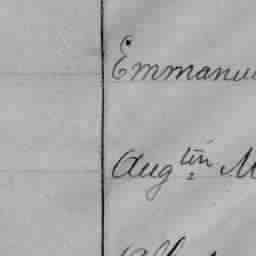 Emmanue
Aug tin M